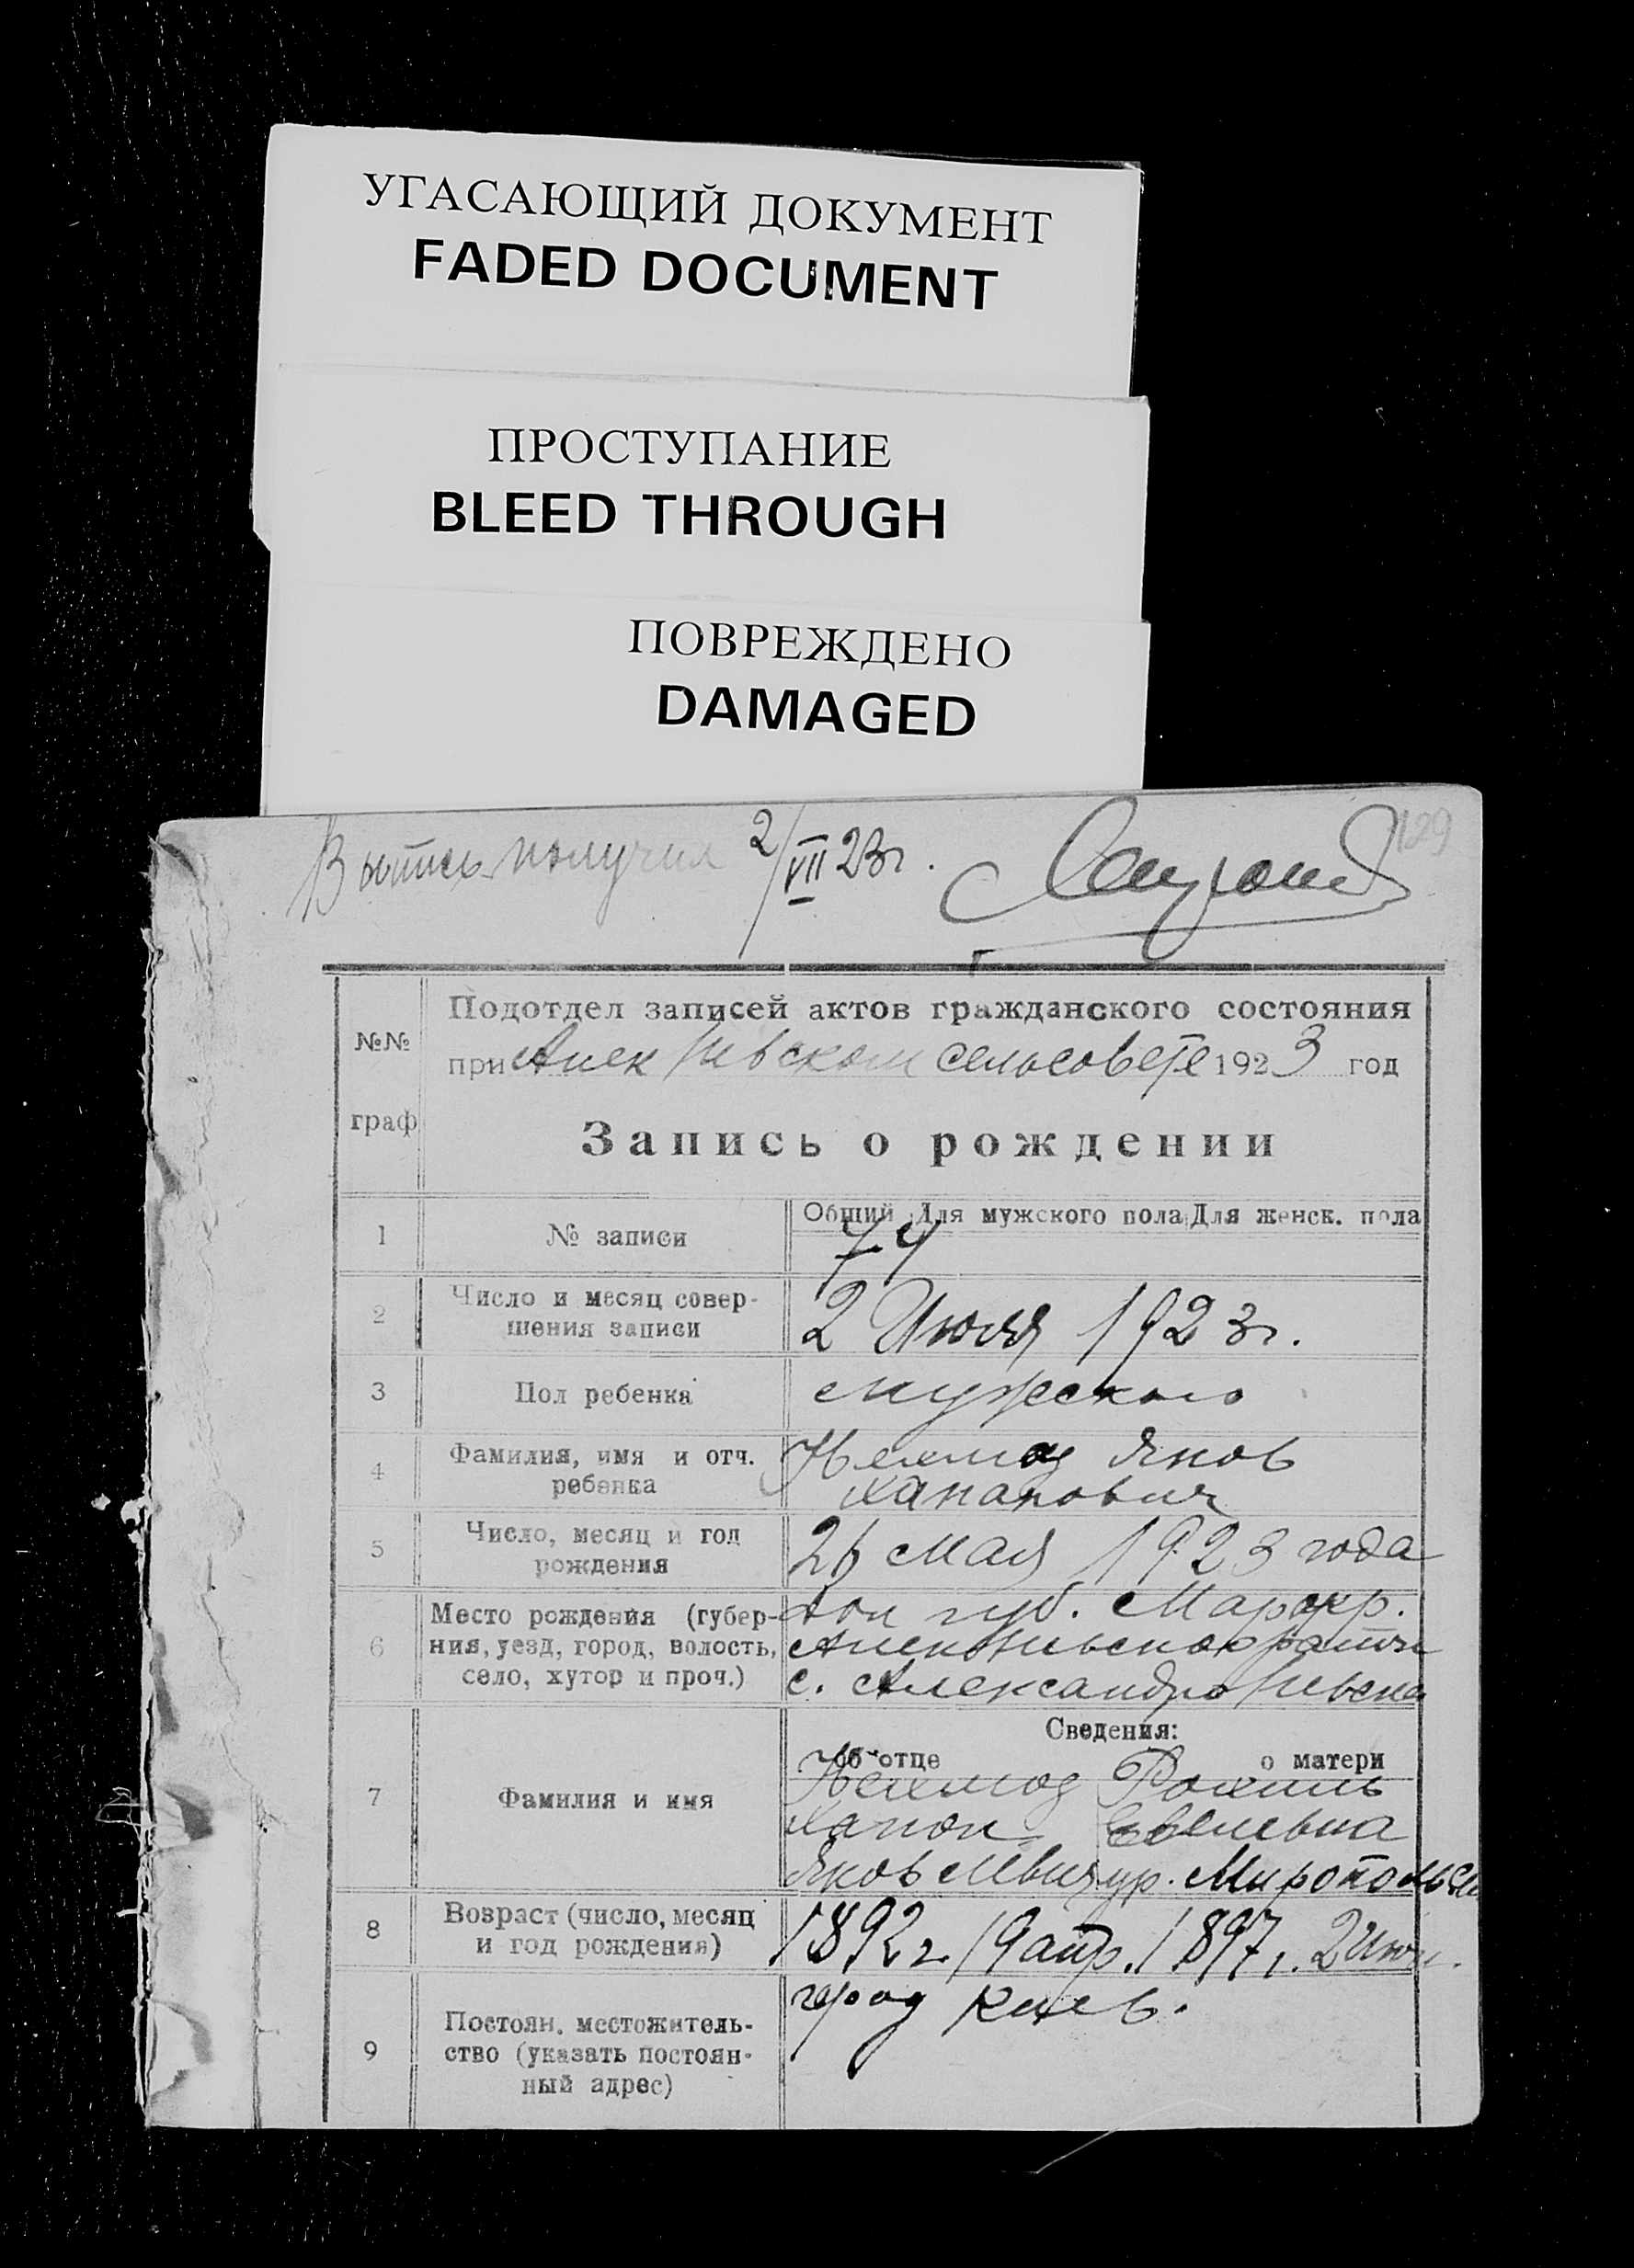 УГАСАЮЩИЙ ДОКУМЕНТ
FADED DOCUMENT
ПРОСТУПАНИЕ
BLEED THROUGH
ПОВРЕЖДЕНО
DAMAGED
129
Выпись получил 2/VII 23г.
Подотдел записей актов гражданского состояния
№№
при Алек Невском сельсовете 1923 год
граф
Запись о рождении
Общий Для мужского пола Для женск. пола
1 № записи 74
2 Число и месяц совер-
шения записи 2 Июля 1923г.
3 Пол ребенка мужского
4 Фамилия, имя и отч. Яков
ребенка Хананович
5 Число, месяц и год 26 мая 1923 года
рождения
Место рождения (губер- Дон губ. Мар окр.
6 ния, уезд, город, волость,
село, хутор и проч.) с. Александро Невска
Сведения:
об отце о матери
7 Фамилия и имя
Ханон
Яковлевич ур. Миропольск
8 Возраст (число, месяц 1892 г. 19 апр. 1897 г. 2 Июн.
и год рождения)
город Киев.
Постоян. местожитель-
9 ство (указать постоян-
ный адрес)